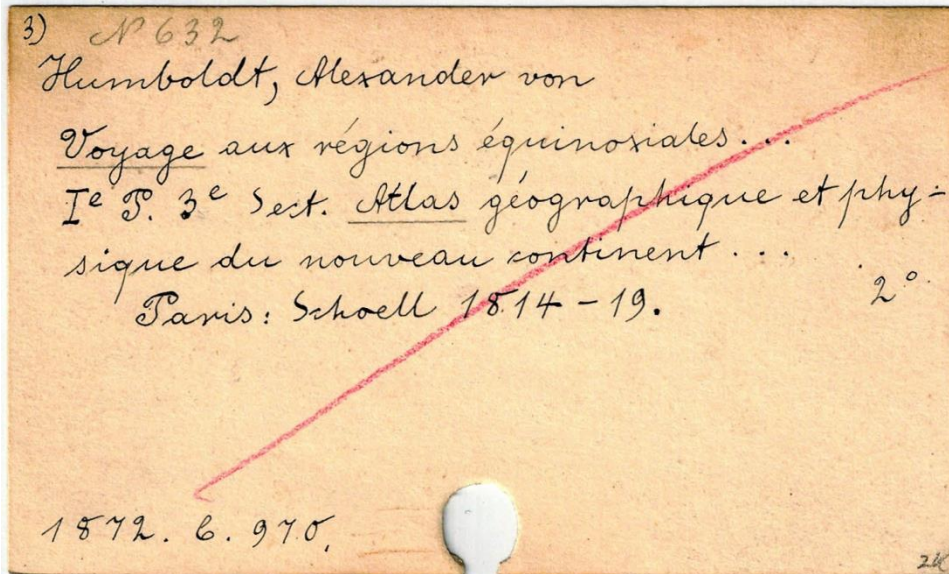 3) N 632
Humboldt, Alexander von
Voyage aux régions équinoxiales...
Ie P. 3e Sect. Atlas géographique et phy=
sique du nouveau continent...
2°.
Paris: Schoell 1814-19.
1872. C. 970.